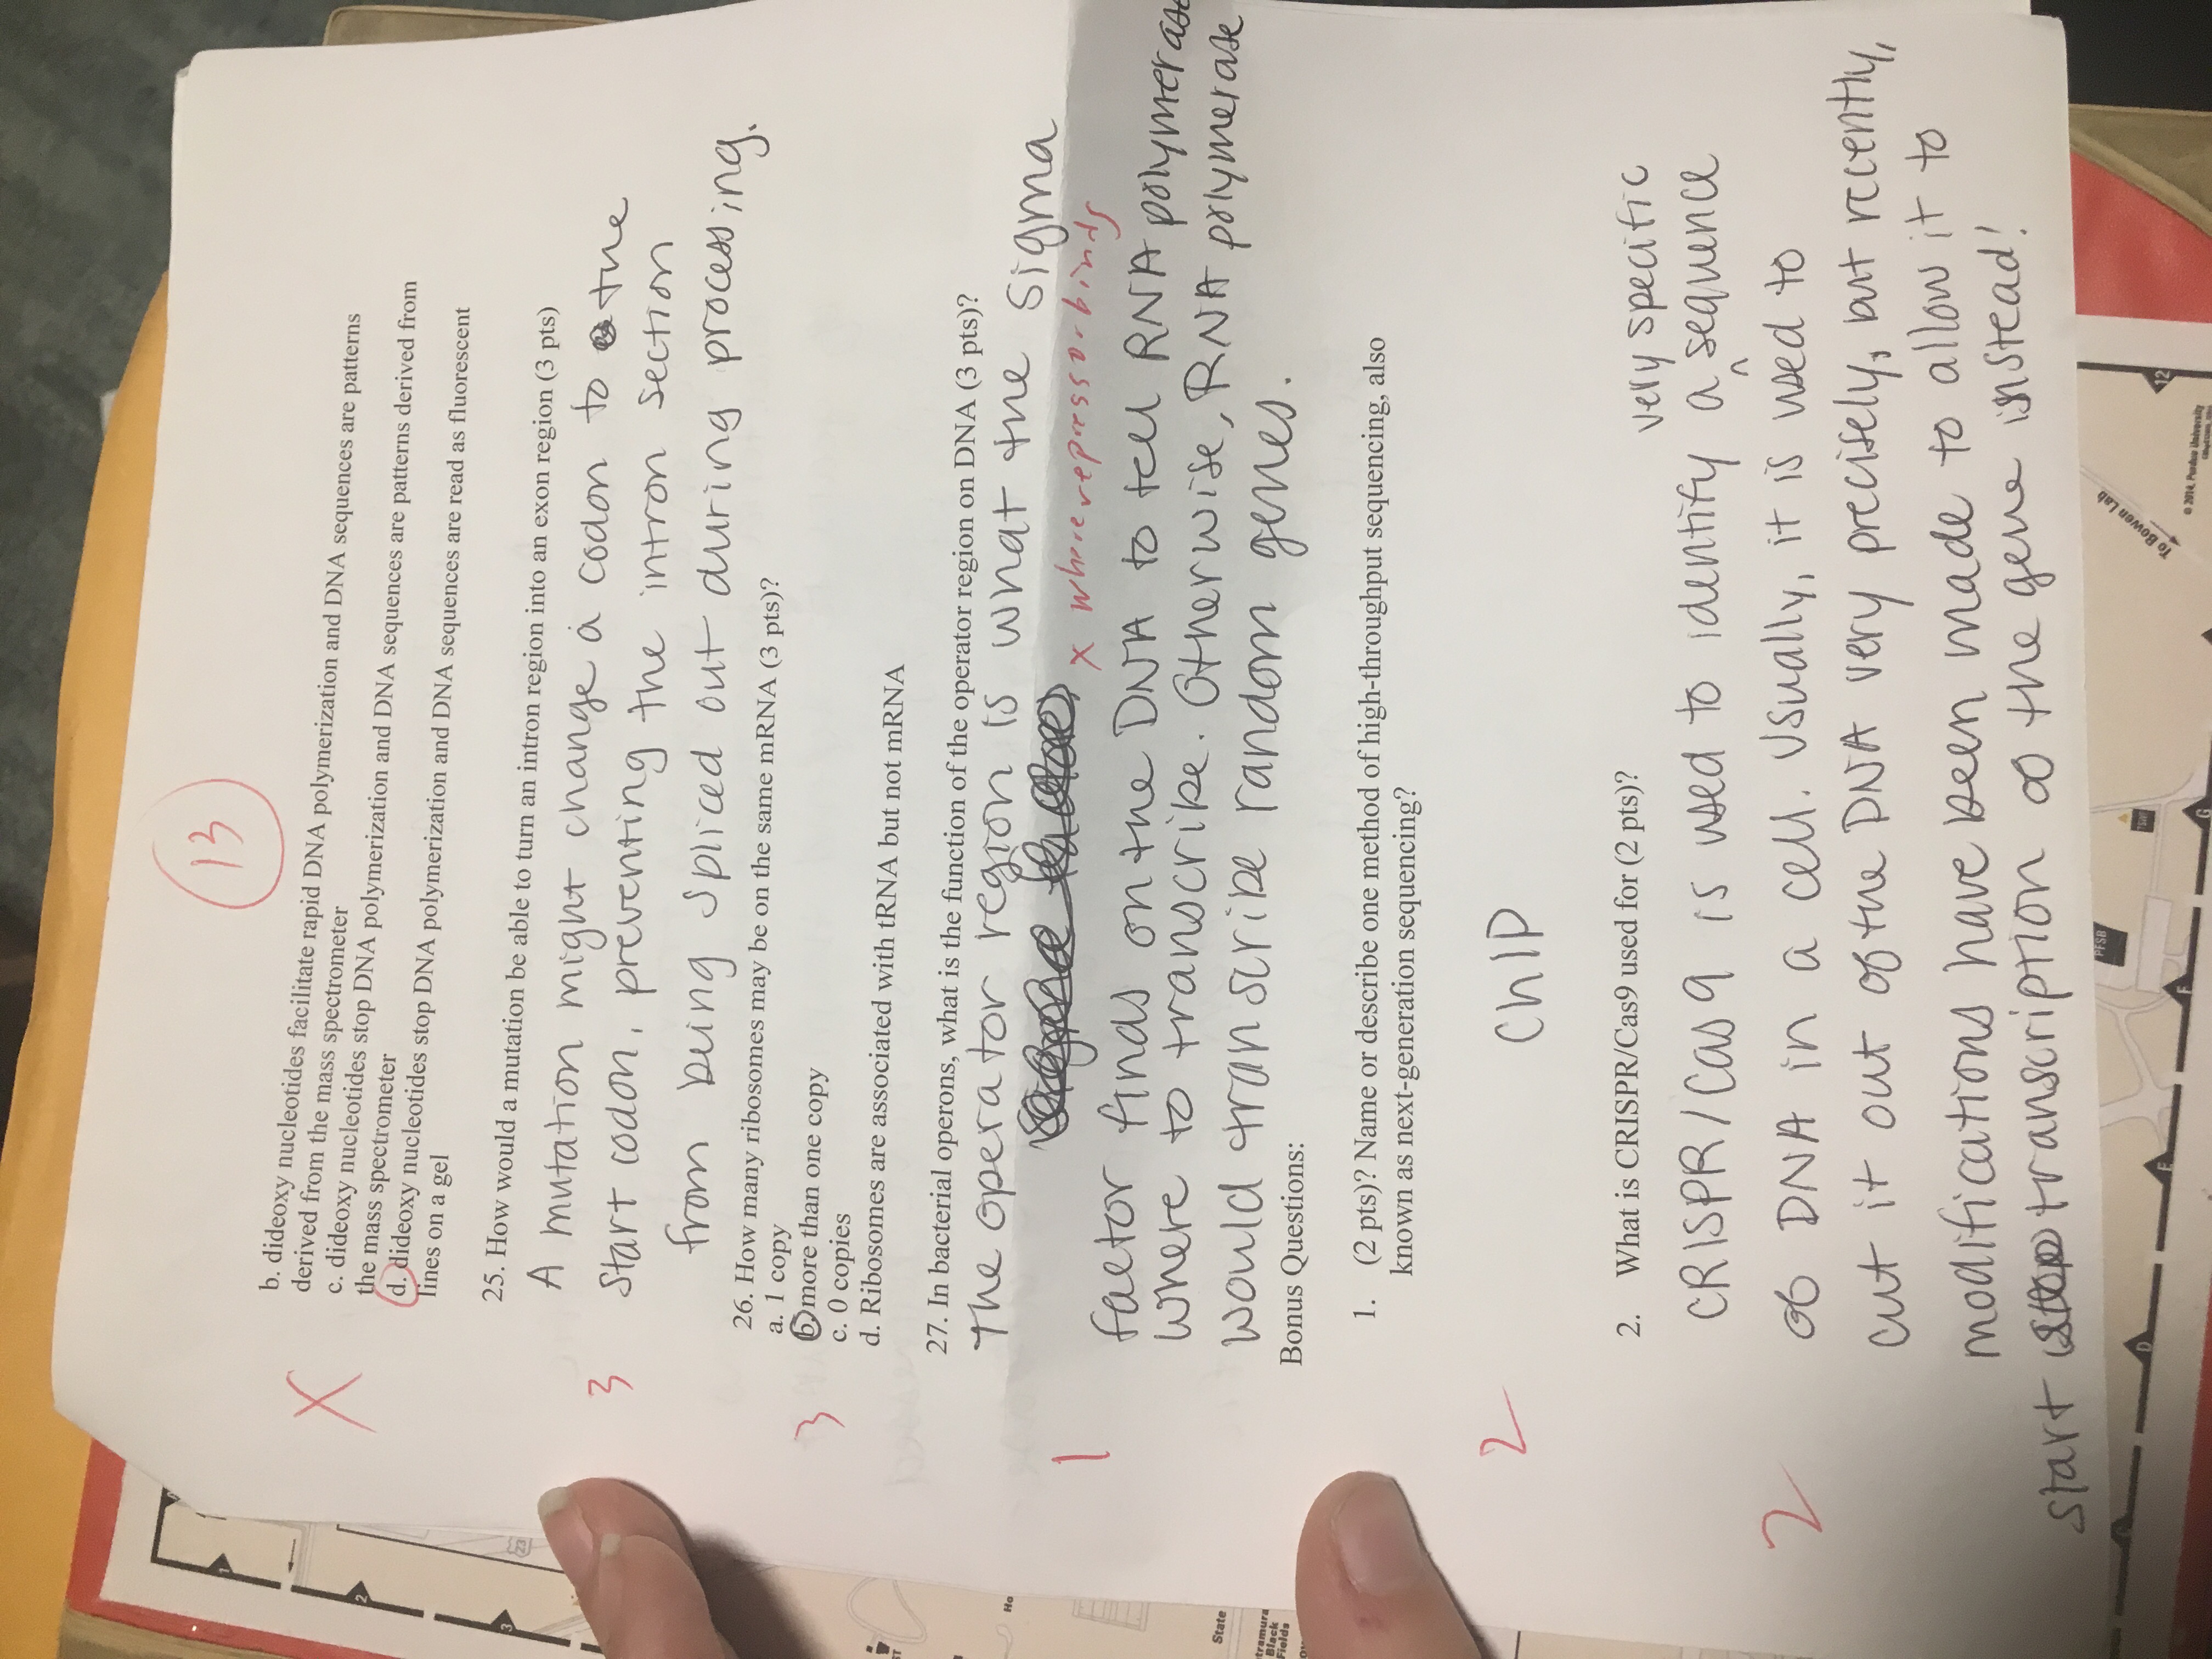 13
X
b. dideoxy nucleotides facilitate rapid DNA polymerization and DNA sequences are patterns
derived from the mass spectrometer
c. dideoxy nucleotides stop DNA polymerization and DNA sequences are patterns derived from
the mass spectrometer
d. dideoxy nucleotides stop DNA polymerization and DNA sequences are read as fluorescent
lines on a gel
25. How would a mutation be able to turn an intron region into an exon region (3 pts)
A mutation might change a codon to the
3
start codon, preventing the intron section
from being spliced out during processing.
26. How many ribosomes may be on the same mRNA (3 pts)?
a. 1 copy
3
b. more than one copy
c. 0 copies
d. Ribosomes are associated with tRNA but not mRNA
27. In bacterial operons, what is the function of the operator region on DNA (3 pts)?
The operator region is what the sigma
1
x where repressor binds
factor finds on the DNA to tell RNA polymerase
where to transcribe. Otherwise, RNA polymerase
would transcribe random genes.
Bonus Questions:
1. (2 pts)? Name or describe one method of high-throughput sequencing, also
known as next-generation sequencing?
2
ChIP
2. What is CRISPR/Cas9 used for (2 pts)?
very specific
CRISPR/Cas9 is used to identify a ^ sequence
2
of DNA in a cell. Usually, it is used to
cut it out of the DNA very precisely, but recently,
modifications have been made to allow it to
start transcription of the gene instead!
1
2
3
23
Ho
State
Black
Fields
PFSB
D
E
F
G
12
To Bowen Lab
© 2014, Purdue University